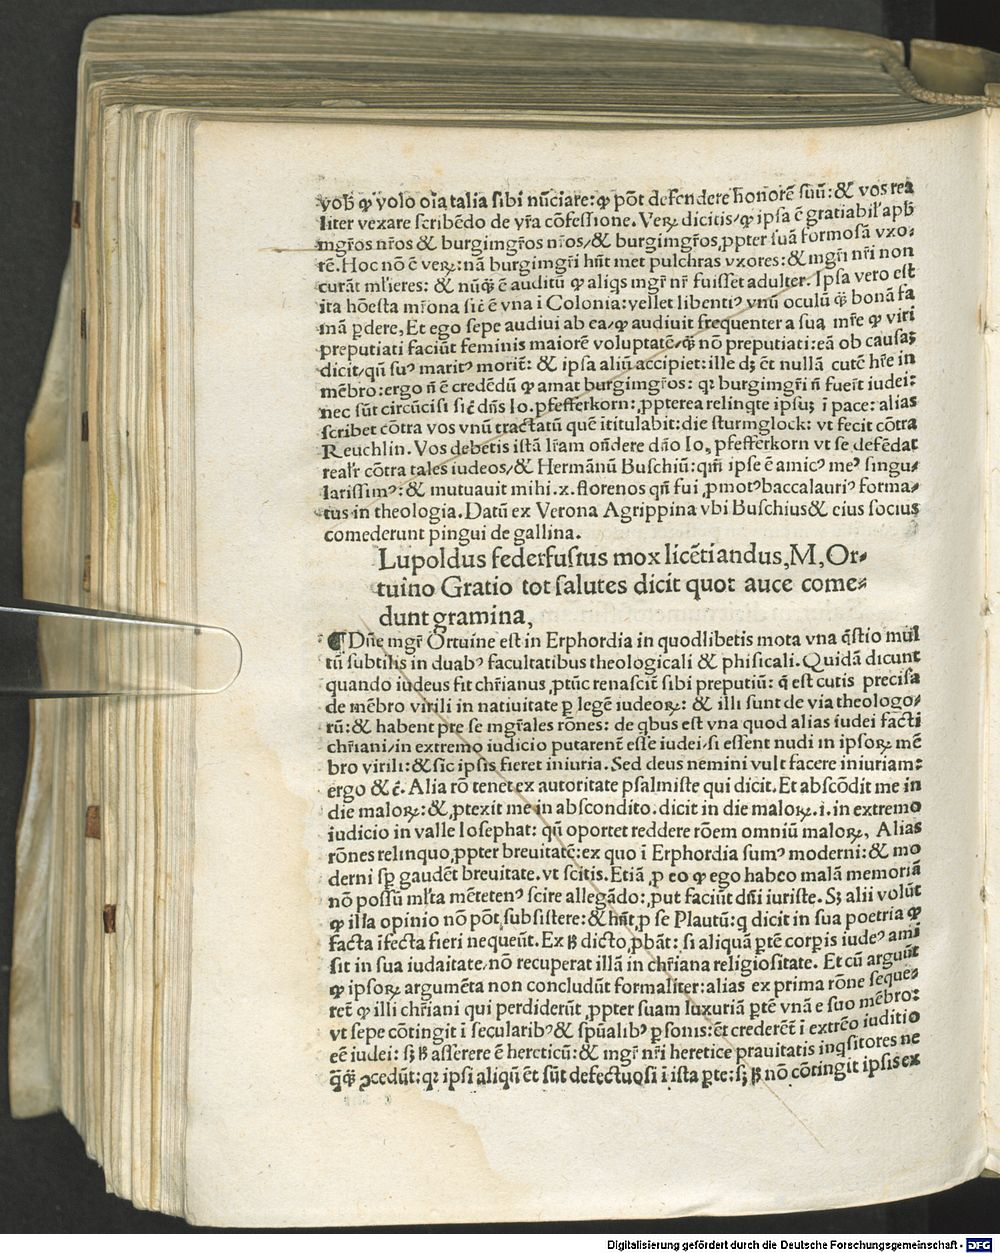 vob̄ ꝙ ꝙ volo oīa talia sibi nūciare: ꝙ pōt defendere honorē suū: & vos rea
liter vexare scribēdo de vr̄a cōfessione. Veꝝ dicitis/ꝙ ipsa ē gratiabil' apđ
mgr̄os nr̄os & burgimgr̄os nr̄os/& burgimgr̄os, ꝓpter suā formosā vxo⸗
rē. Hoc nō ē veꝝ: nā burgimgr̄i hn̄t met pulchras vxores: & mgr̄i nr̄i non
curāt ml'ieres: & nūꝗ̄ ē auditū ꝙ aliqs mgr̄ nr̄ fuisset adulter. Ipsa vero est
ita hōesta mr̄ona sic̄ ē vna i Colonia: vellet libentiꝰ vnū oculū ꝗ̄ bonā fa
mā ꝑdere, Et ego sepe audiui ab ea/ꝙ audiuit frequenter a sua mr̄e ꝙ viri
preputiati faciūt feminis maiorē voluptatē/ꝗ̄ nō preputiati: eā ob causaꝫ
dicit/qn̄ suꝰ maritꝰ morit̄: & ipsa aliū accipiet: ille dꝫ ēt nullā cutē hr̄e in
mēbro: ergo n̄ ē credēdū ꝙ amat burgimgr̄os: qꝛ burgimgr̄i n̄ fuer̄t iudei:
nec sūt circūcisi sic̄ dn̄s Io. pfefferkorn:, ꝓpterea relinqte ipsuꝫ ī pace: alias
scribet cōtra vos vnū tractatū quē ītitulabit: die sturmglock: vt fecit cōtra
Reuchlin. Vos debetis istā lr̄am on̄dere dn̄o Io, pfefferkorn vt se defēdat
real'r cōtra tales iudeos/& Hermānū Buschiū: qm̄ ipse ē amicꝰ meꝰ singu⸗
larissimꝰ: & mutuauit mihi .x. florenos qn̄ fui ꝓmotꝰ baccalauriꝰ forma⸗
tus in theologia. Datū ex Verona Agrippina vbi Buschius & eius socius
comederunt pingui de gallina.
Lupoldus federfusius mox licētiandus, M, Or⸗
tuino Gratio tot salutes dicit quot auce come⸗
dunt gramina,
¶ Dn̄e mgr̄ Ortuine est in Erphordia in quodlibetis mota vna q̄stio mul
tū subtilis in duabꝰ facultatibus theologicali & phisicali. Quidā dicunt
quando iudeus fit chr̄ianus, ꝓtūc renascit̄ sibi preputiū: q̄ est cutis precisa
de mēbro virili in natiuitate ꝑ legē iudeoꝝ: & illi sunt de via theologo⸗
rū: & habent pre se mgr̄ales rōnes: de qbus est vna quod alias iudei facti
chr̄iani/in extremo iudicio putarent̄ esse iudei/si essent nudi in ipsoꝝ mē
bro virili: & sic ipsis fieret iniuria. Sed deus nemini vult facere iniuriam:
ergo &c̄. Alia rō tenet ex autoritate psalmiste qui dicit. Et abscōdit me in
die maloꝝ: &, ꝓtexit me in abscondito. dicit in die maloꝝ. i. in extremo
iudicio in valle Iosephat: qn̄ oportet reddere rōem omniū maloꝝ, Alias
rōnes relinquo, ꝓpter breuitatē: ex quo ī Erphordia sumꝰ moderni: & mo
derni sꝑ gaudēt breuitate. vt scitis. Etiā, ꝓ eo ꝙ ego habeo malā memoriā
nō possū ml'ta mētetenꝰ scire allegādo:, put faciūt dn̄i iuriste. Sꝫ alii volūt
ꝙ illa opinio nō pōt subsistere: & hn̄t ꝓ se Plautū: q dicit in sua poetria ꝙ
facta īfecta fieri nequeūt. Ex ꝧ dicto, ꝓbāt: si aliquā ꝑtē corꝑis iudeꝰ ami
sit in sua iudaitate, nō recuperat illā in chr̄iana religiositate. Et cū arguūt
ꝙ ipsoꝝ argumēta non concludūt formaliter: alias ex prima rōne seque⸗
ret̄ ꝙ illi chr̄iani qui perdiderūt, ꝓpter suam luxuriā ꝑtē vnā e suo mēbro:
vt sepe cōtingit ī secularibꝰ & spūalibꝰ ꝑsonis: ēt crederēt̄ ī extrēo iuditio
eē iudei: sꝫ ꝧ asserere ē hereticū: & mgr̄ nr̄i heretice prauitatis inqsitores ne
q̄ꝗ̄ ꝯcedūt: qꝛ ipsi aliqn̄ ēt sūt defectuosi ī ista ꝑte: sꝫ ꝧ nō cōtingit ipsis ex
Digitalisierung gefördert durch die Deutsche Forschungsgemeinschaft - DFG